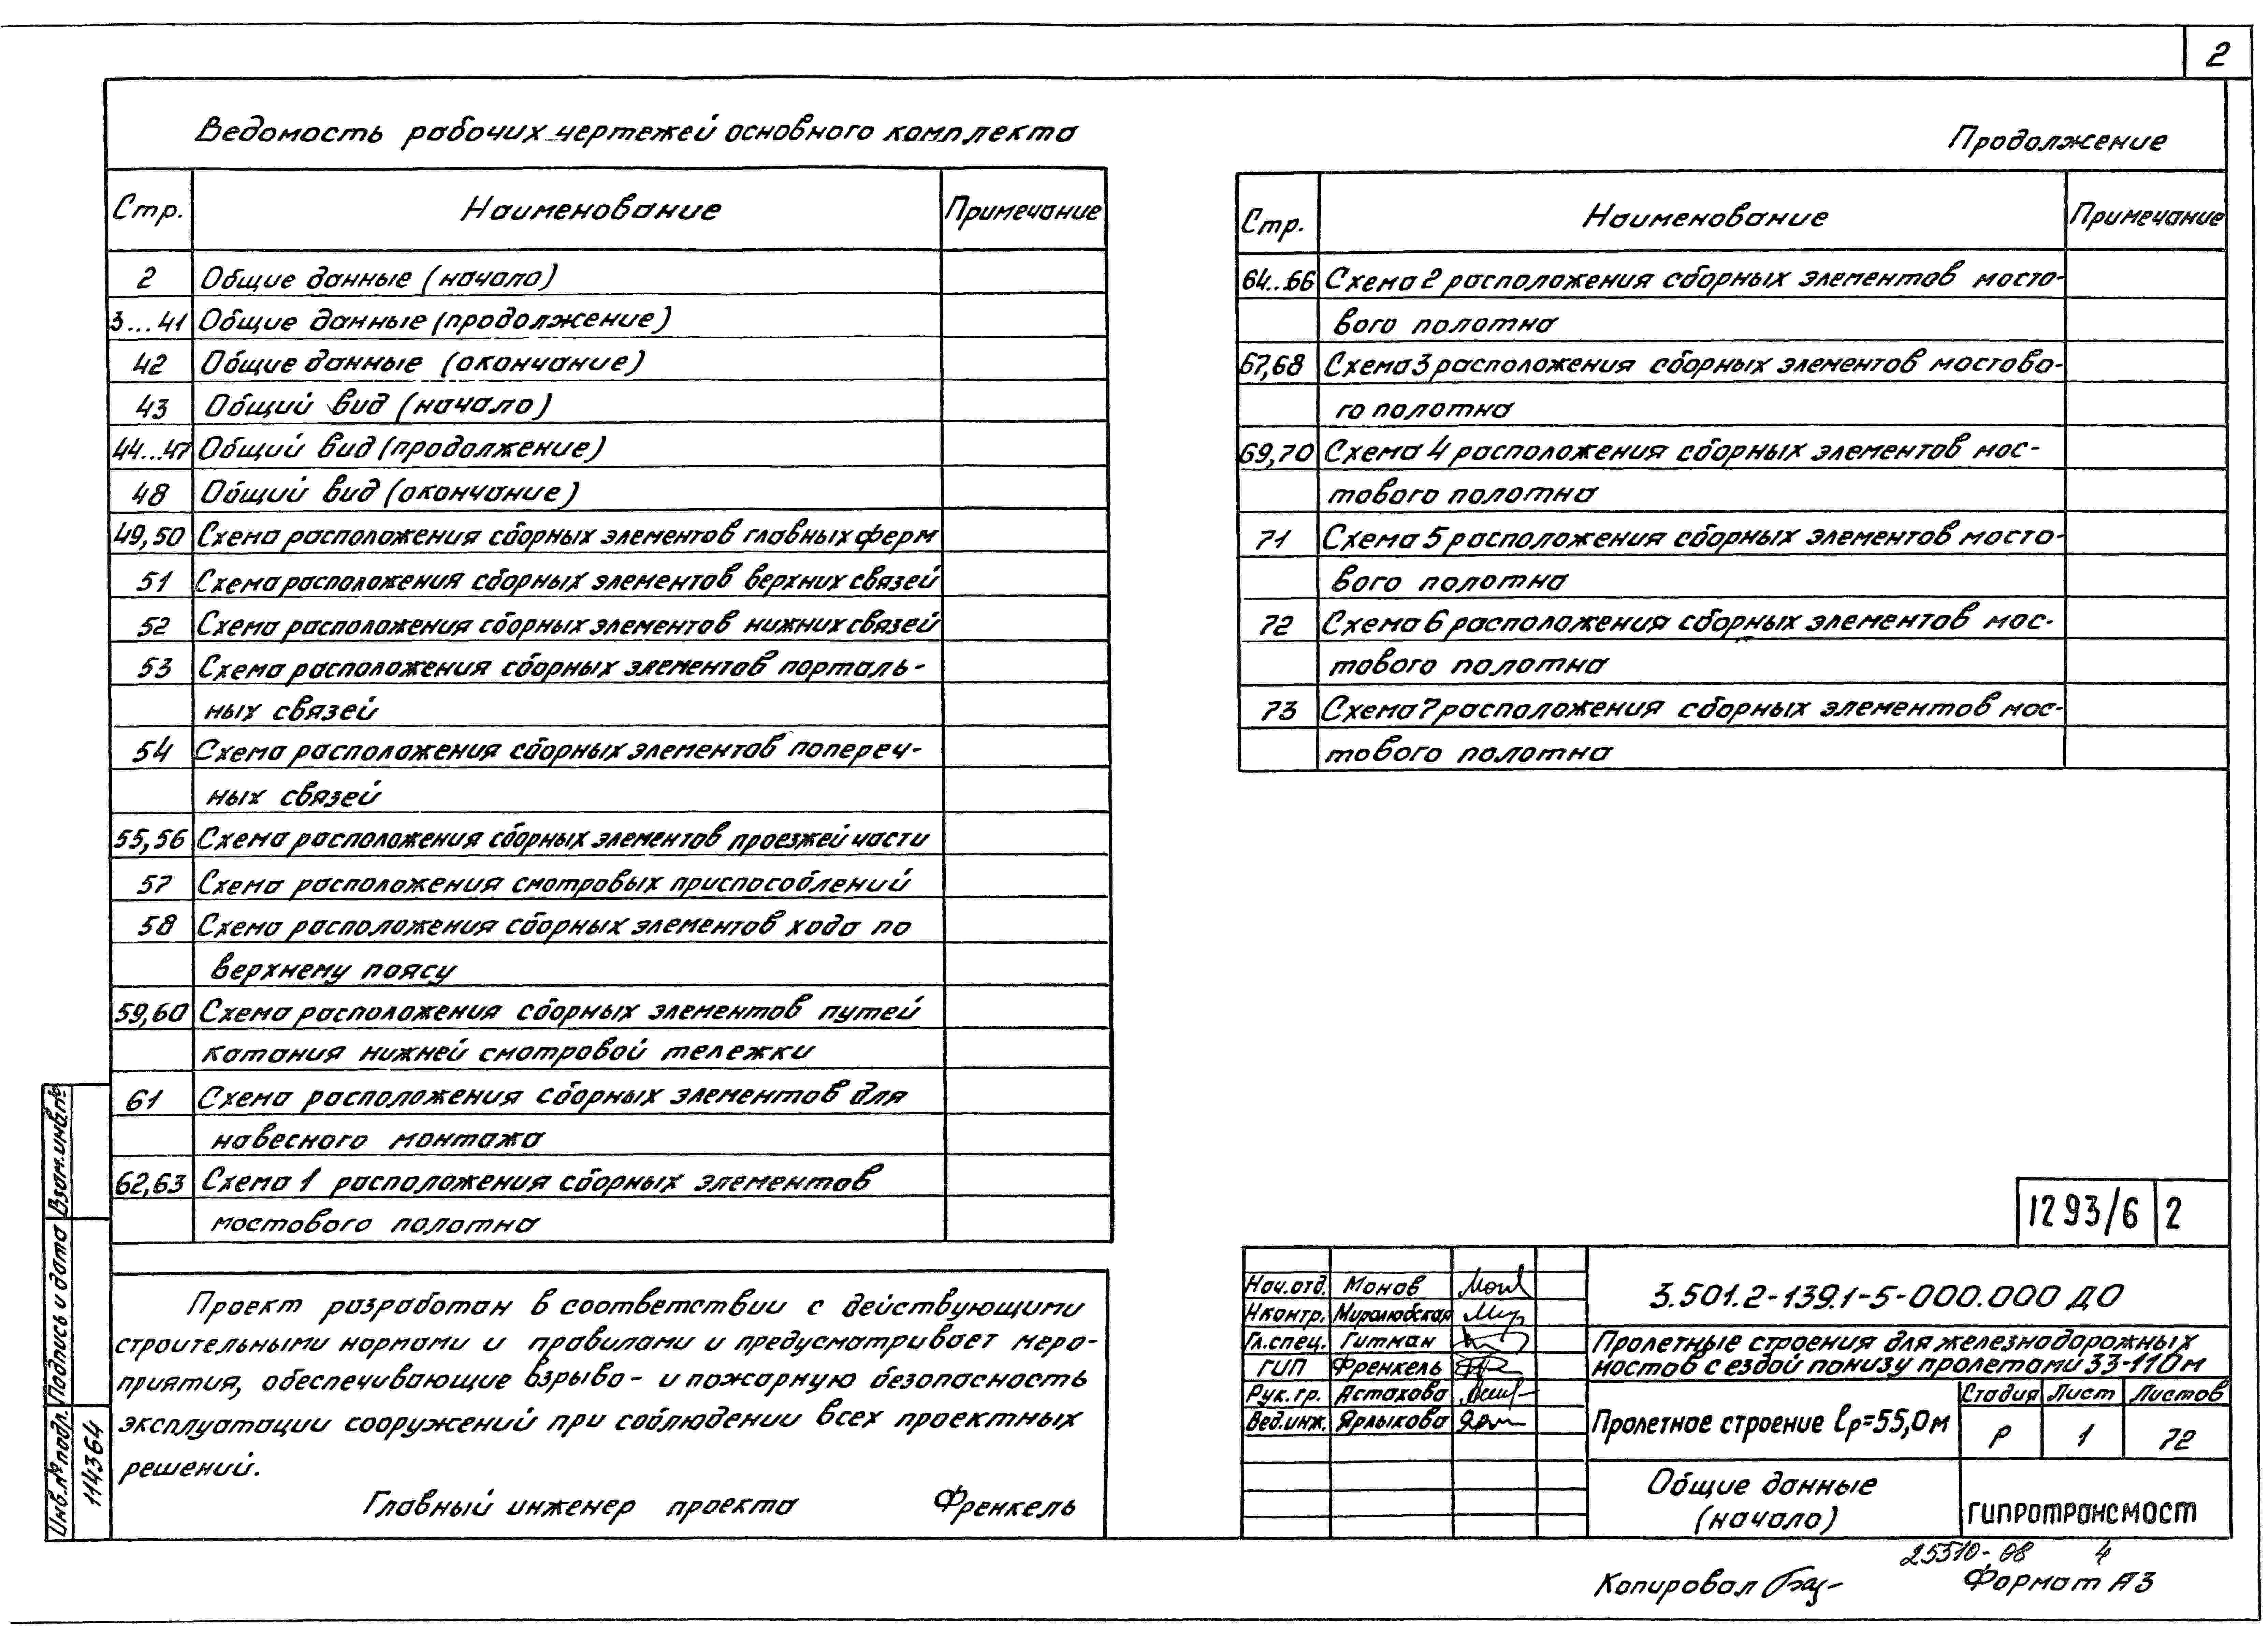 2
Ведомость рабочих чертежей основного комплекта
Стр. Наименование Примечание
2 Общие данные (начало)
3...41 Общие данные (продолжение)
42 Общие данные (окончание)
43 Общий вид (начало)
44...47 Общий вид (продолжение)
48 Общий вид (окончание)
49,50 Схема расположения сборных элементов главных ферм
51 Схема расположения сборных элементов верхних связей
52 Схема расположения сборных элементов нижних связей
53 Схема расположения сборных элементов порталь-
ных связей
54 Схема расположения сборных элементов попереч-
ных связей
55,56 Схема расположения сборных элементов проезжей части
57 Схема расположения смотровых приспособлений
58 Схема расположения сборных элементов хода по
верхнему поясу
59,60 Схема расположения сборных элементов путей
катания нижней смотровой тележки
61 Схема расположения сборных элементов для
навесного монтажа
62,63 Схема 1 расположения сборных элементов
мостового полотна
Продолжение
Стр. Наименование Примечание
64..66 Схема 2 расположения сборных элементов мосто-
вого полотна
67,68 Схема 3 расположения сборных элементов мостово-
го полотна
69,70 Схема 4 расположения сборных элементов мос-
тового полотна
71 Схема 5 расположения сборных элементов мосто-
вого полотна
72 Схема 6 расположения сборных элементов мос-
тового полотна
73 Схема 7 расположения сборных элементов мос-
тового полотна
Проект разработан в соответствии с действующими
строительными нормами и правилами и предусматривает меро-
приятия, обеспечивающие взрыво- и пожарную безопасность
эксплуатации сооружений при соблюдении всех проектных
решений.
Главный инженер проекта Френкель
Взам.инв.№
Подпись и дата
Инв.№ подл.
114364
1293/6 2
Нач.отд. Монов
Н.контр. Миролюбская
Гл.спец. Гитман
ГИП Френкель
Рук.гр. Астахова
Вед.инж. Ярлыкова
3.501.2-139.1-5-000.000 ДО
Пролетные строения для железнодорожных
мостов с ездой понизу пролетами 33-110м
Пролетное строение lр=55,0м
Стадия Лист Листов
Р 1 72
Общие данные
(начало)
ГИПРОТРАНСМОСТ
25510-08 4
Копировал
Формат А3